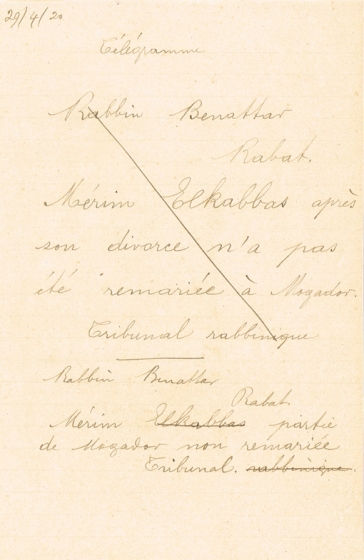 29/4/20
Télégramme
Rabbin Benattar
Rabat.
Mérim Elkabbas après
son divorce n'a pas
été remariée à Mogador.
Tribunal rabbinique
Rabbin Benattar
Rabat
Mérim Elkabbas partie
de Mogador non remariée
Tribunal. rabbinique.